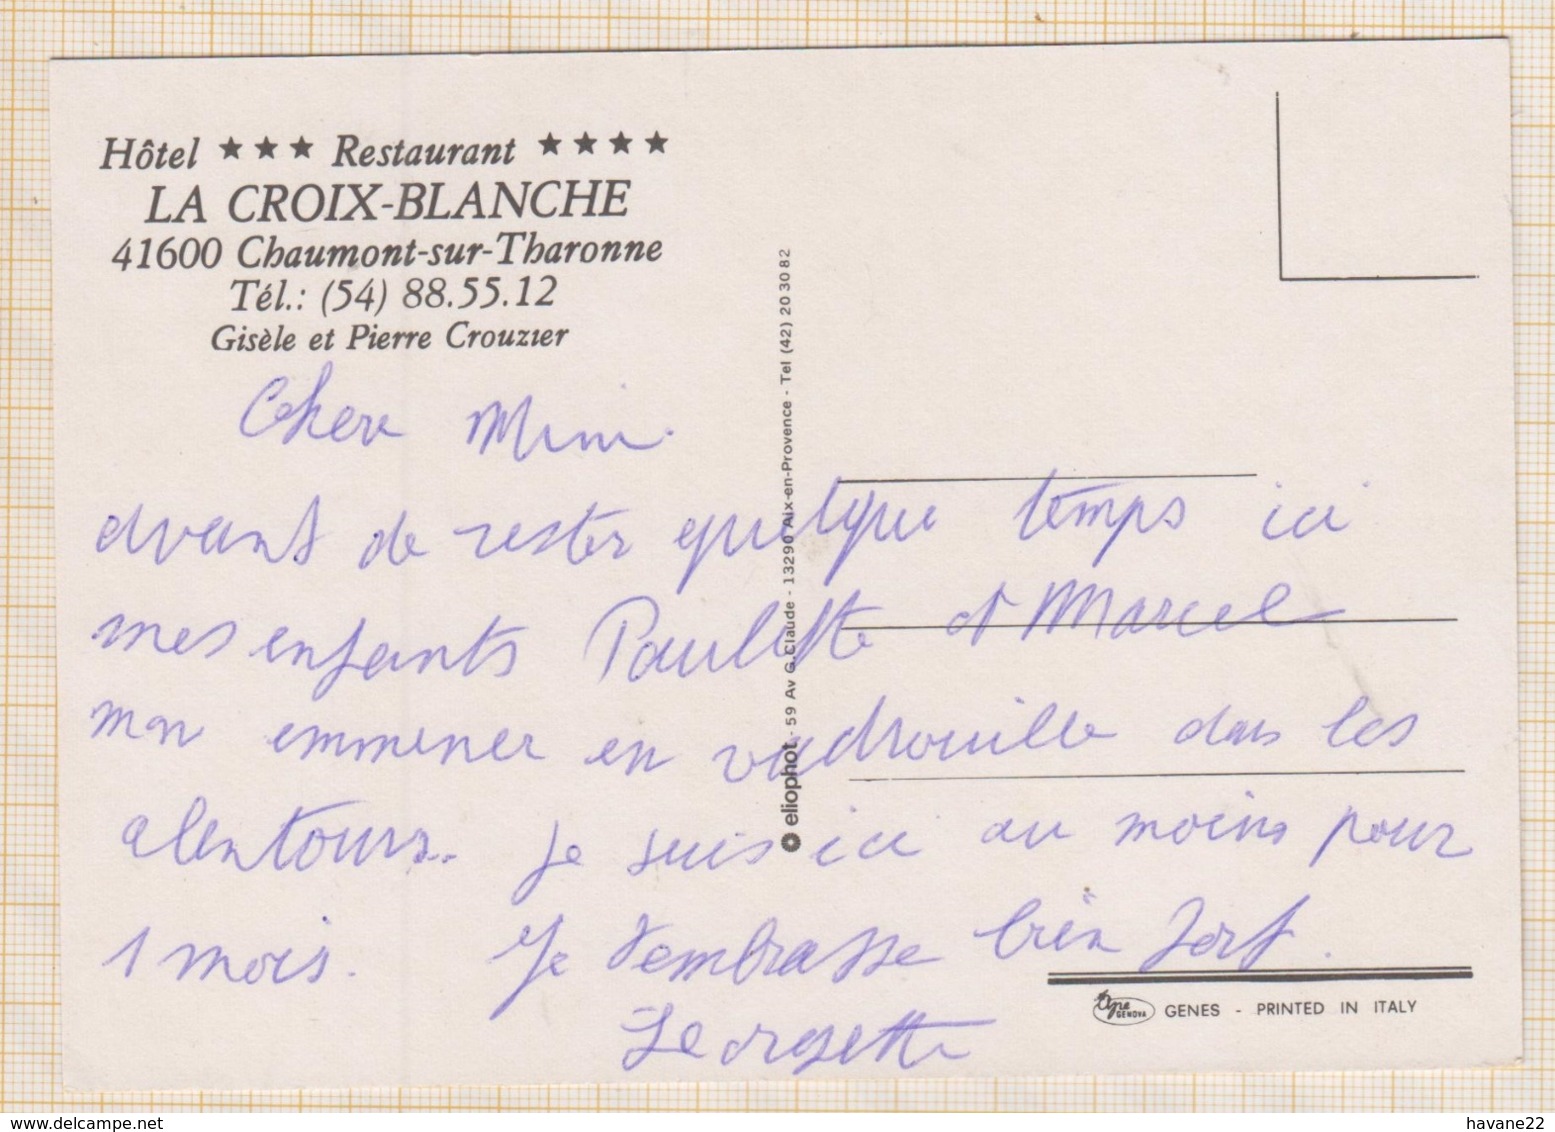 Hôtel ★ ★ ★ Restaurant ★ ★ ★ ★
LA CROIX-BLANCHE
41600 Chaumont-sur-Tharonne
Tél.: (54) 88.55.12
Gisèle et Pierre Crouzier
Chere Mimi.
avant de rester quelque temps ici
mes enfants Paulette et Marcel
mon emmener en vadrouille dans les
alentours. Je suis ici au moins pour
1 mois. Je t'embrasse bien fort.
Georgette
eliophot - 59 Av G.Claude - 13290 Aix-en-Provence - Tel (42) 20 30 82
GENOVA GENES - PRINTED IN ITALY
www.delcampe.net
havane22